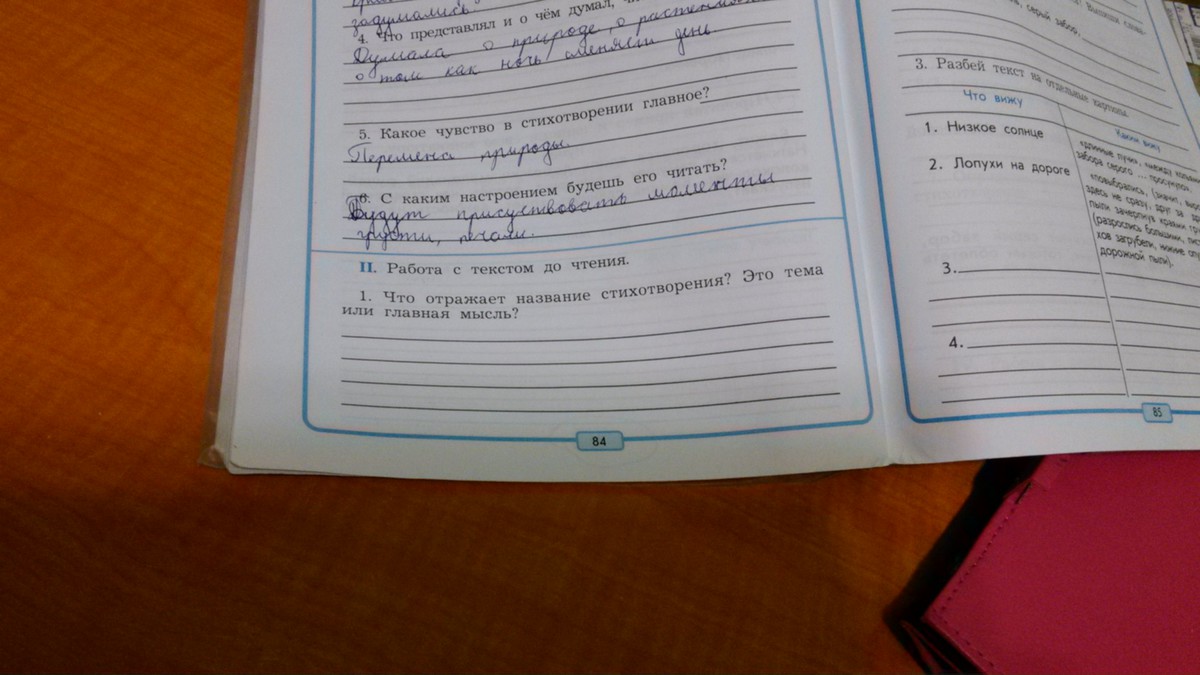 задумались
4. Что представлял и о чём думал,
Думала о природе, о растениях
о том как ночь сменяли день
5. Какое чувство в стихотворении главное?
Перемена природы.
6. С каким настроением будешь его читать?
Будут присуствовать моменты
грусти, печали.
II. Работа с текстом до чтения.
1. Что отражает название стихотворения? Это тема
или главная мысль?
84
серый забор,
3. Разбей текст на отдельные картины.
Что вижу
Каким вижу
1. Низкое солнце
длинные лучи,
забора серого ...
2. Лопухи на дороге
«повыбрались, (значит,
здесь не сразу, друг за
пыли зачерпнув краями
(разрослись большими,
хов загрубели, нижние
дорожной пыли).
3.
4.
85